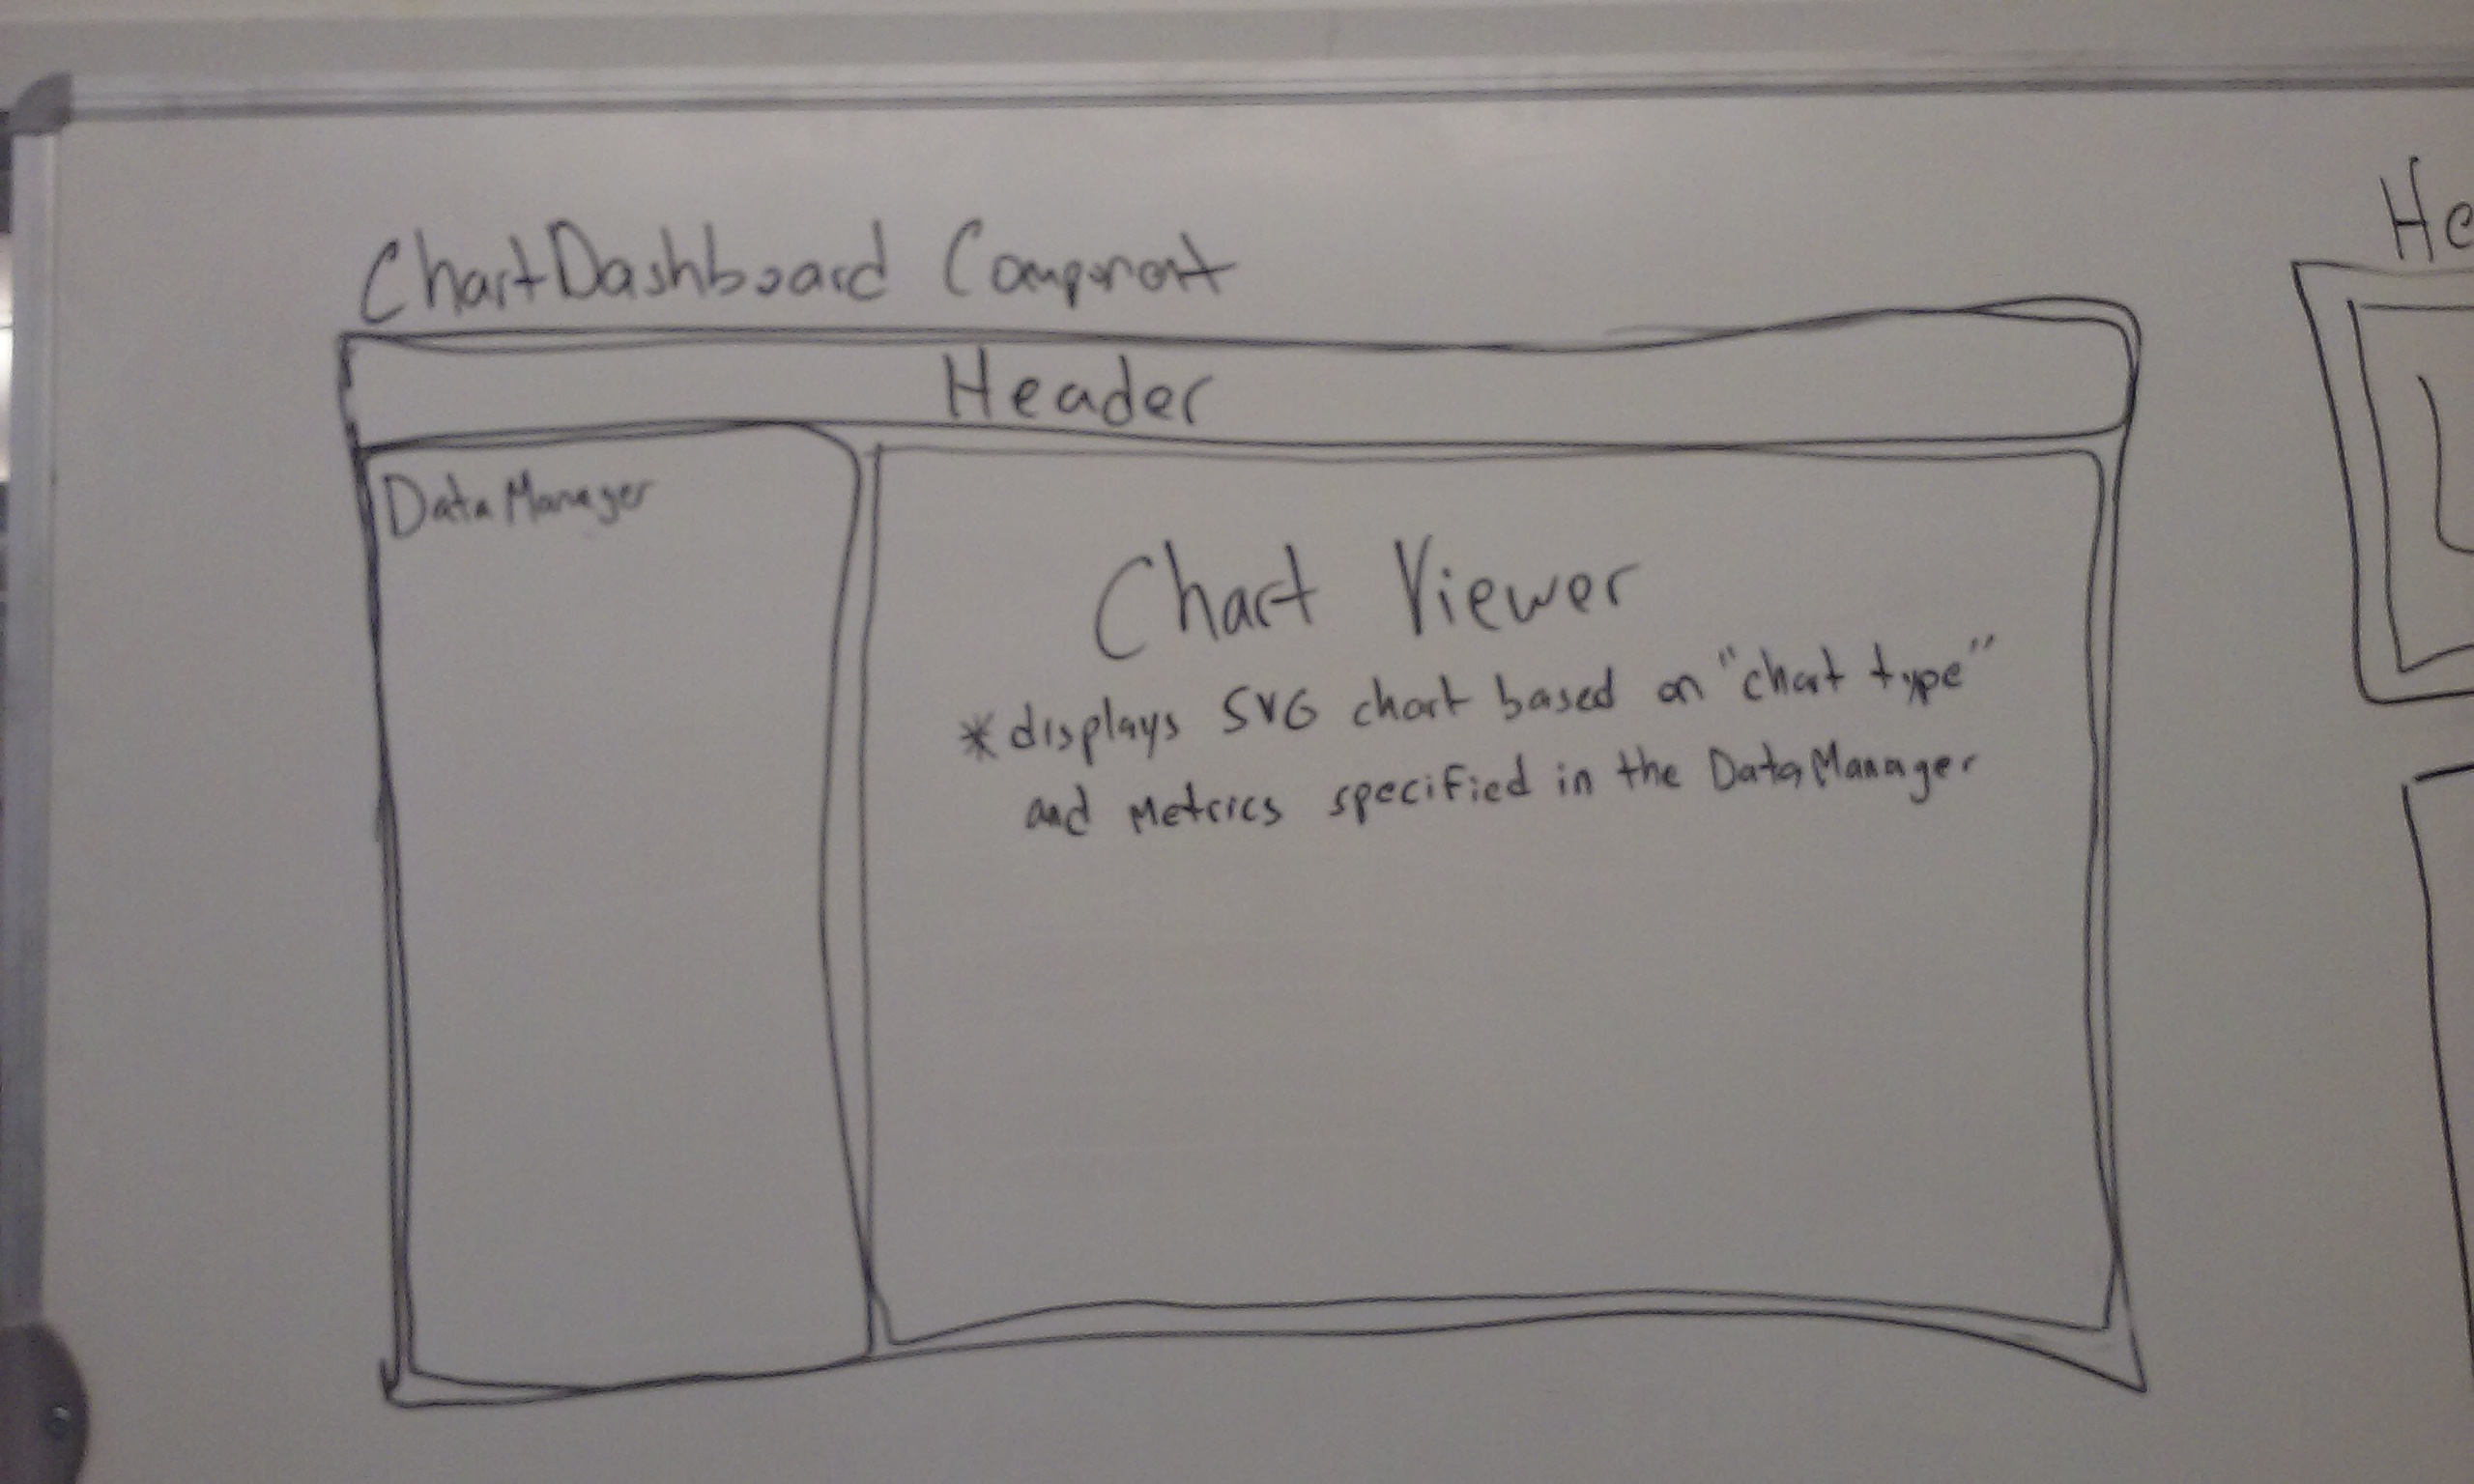 ChartDashboard Component
He
Header
DataManager
Chart Viewer
*displays SVG chart based on "chart type"
and metrics specified in the DataManager